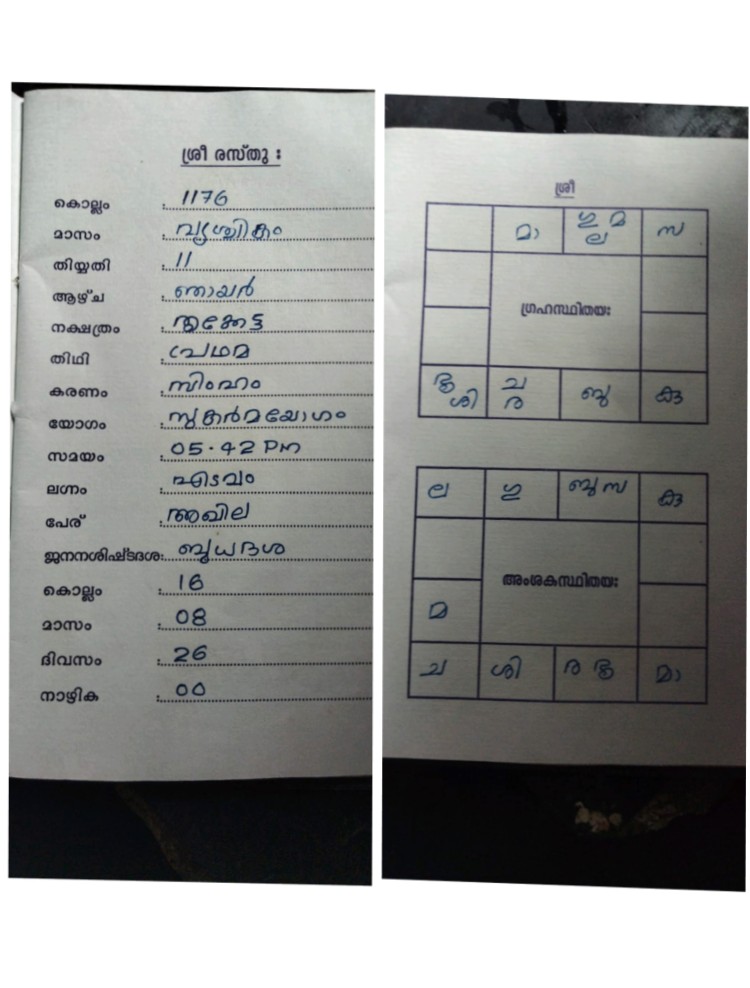 ശ്രീ രസ്തു :
കൊല്ലം : 1176
മാസം : വൃശ്ചികം
തിയ്യതി : 11
ആഴ്ച : ഞായർ
നക്ഷത്രം : തൃക്കേട്ട
തിഥി : പ്രഥമ
കരണം : സിംഹം
യോഗം : സുകർമയോഗം
സമയം : 05.42 PM
ലഗ്നം : എടവം
പേര് : അഖില
ജനനശിഷ്ടദശ: ബുധദശ
കൊല്ലം : 16
മാസം : 08
ദിവസം : 26
നാഴിക : 00
ശ്രീ
മാ ഗു മ സ
ല
ഗ്രഹസ്ഥിതയഃ
ശി ച ബു കു
ര
ല ഗു ബു സ കു
അംശകസ്ഥിതയഃ
മ
ച ശി ര മാ